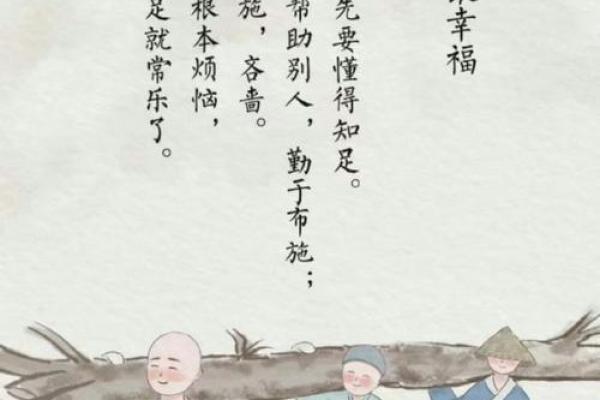 幸福
先要懂得知足。
帮助别人，勤于布施；
施，吝啬。
根本烦恼，
足就常乐了。